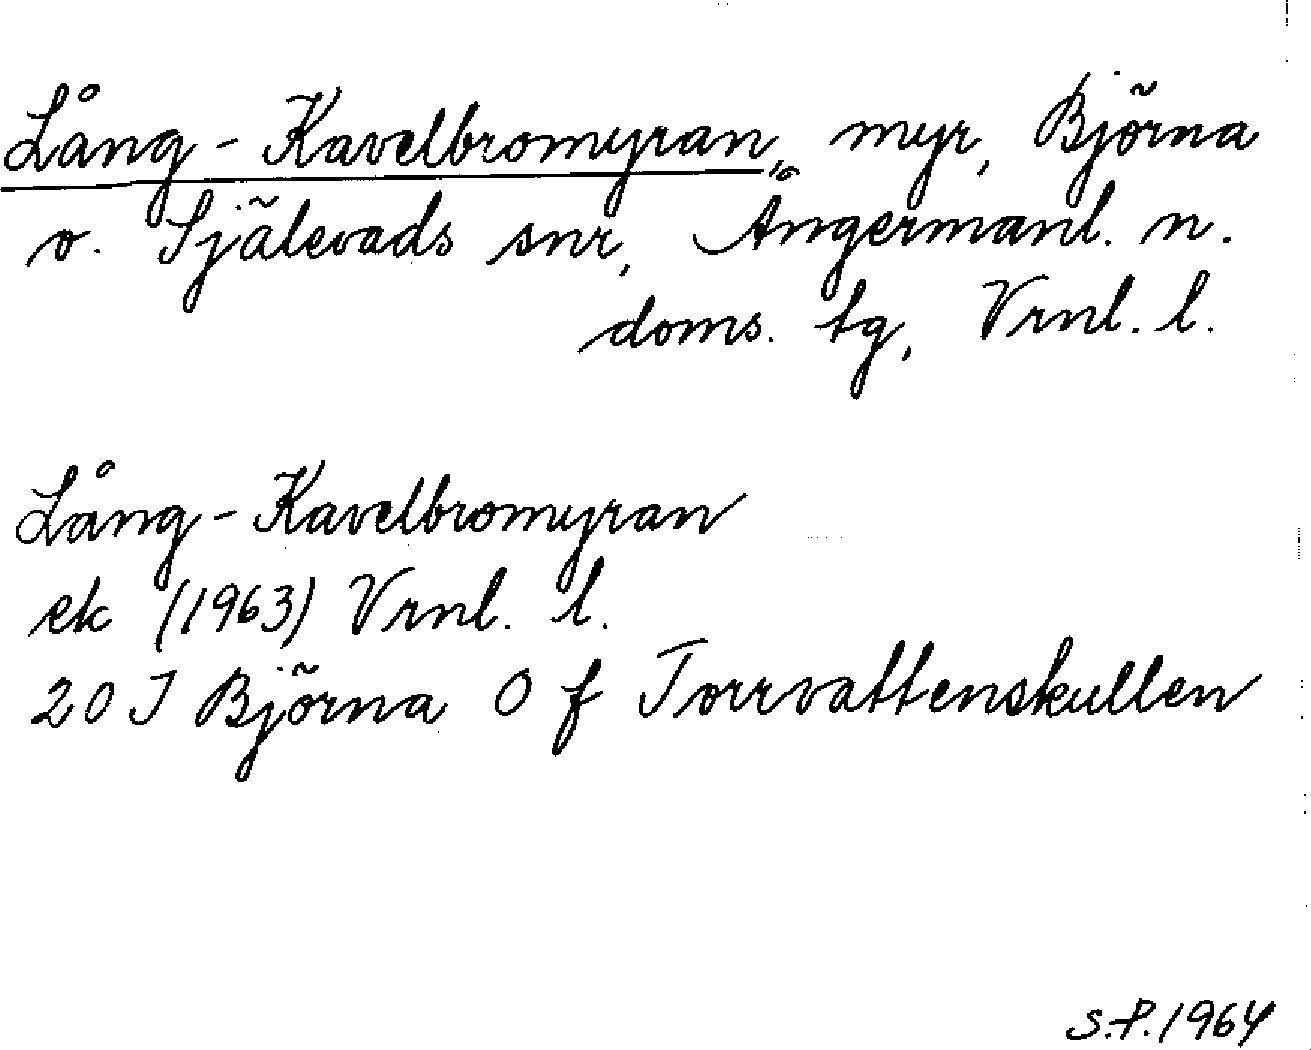 Lång-Kavelbromyran, myr, Björna
o. Själevads snr, Ångermanl. n.
doms. tg, Vrnl. l.
Lång-Kavelbromyran
ek (1963) Vrnl. l.
20 J Björna O f Torrvattenskullen
S.P. 1964